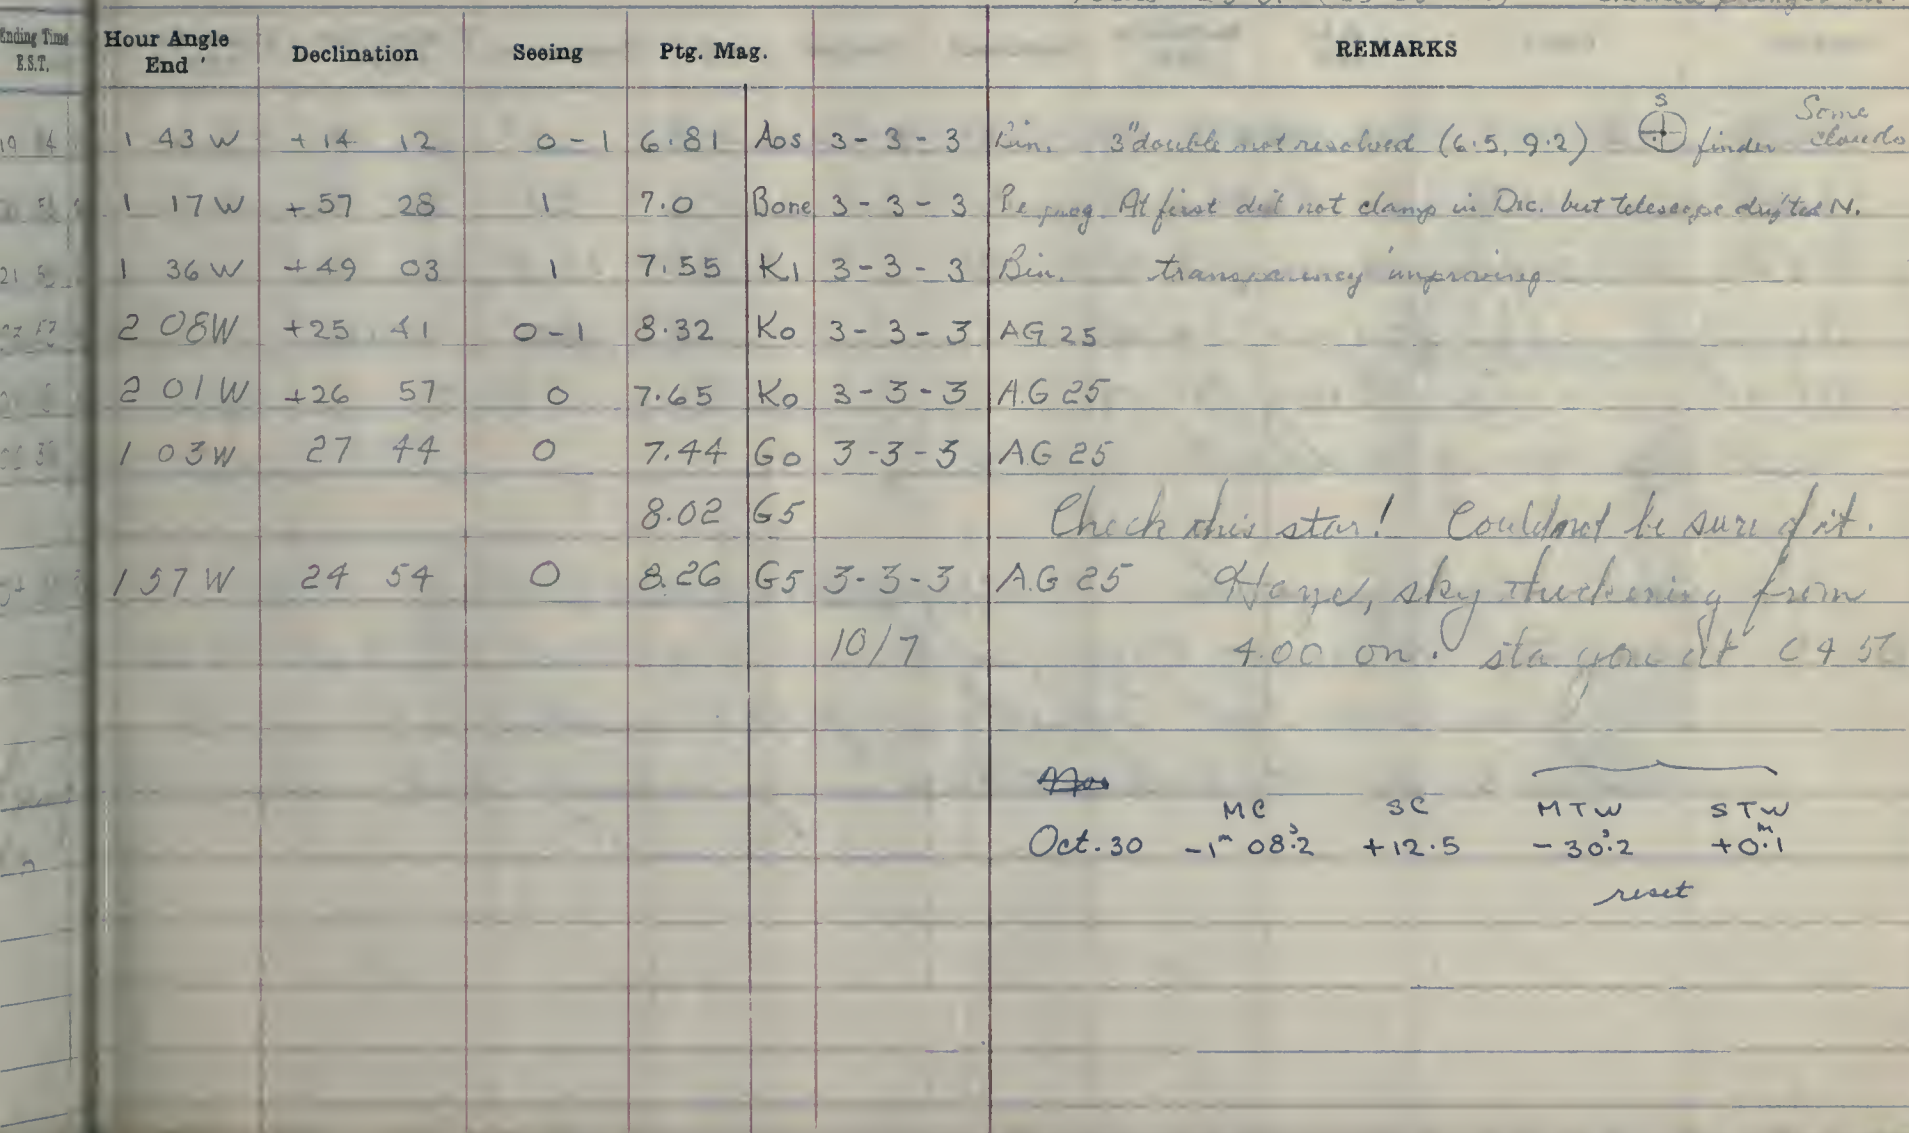 Ending Time E.S.T. Hour Angle End Declination Seeing Ptg. Mag. REMARKS
19 4 1 43 W +14 12 0-1 6.81 A0s 3-3-3 Bin. 3" double not resolved (6.5, 9.2) S finder Some clouds
1 17 W +57 28 1 7.0 Bone 3-3-3 Be prog. At first did not clamp in Dec. but telescope drifted N.
21 5 1 36 W +49 03 1 7.55 K1 3-3-3 Bin. transparency improving
2 08 W +25 41 0-1 8.32 K0 3-3-3 AG 25
2 01 W +26 57 0 7.65 K0 3-3-3 A.G 25
1 03 W 27 44 0 7.44 G0 3-3-3 AG 25
8.02 G5 Check this star! Could not be sure of it.
1 57 W 24 54 0 8.26 G5 3-3-3 A.G 25 Haze, sky thickening from
10/7 4.00 on. at
MC SC MTW STW
Oct. 30 -1ᵐ 08ˢ.2 +12.5 -30ˢ.2 +0ᵐ.1
reset